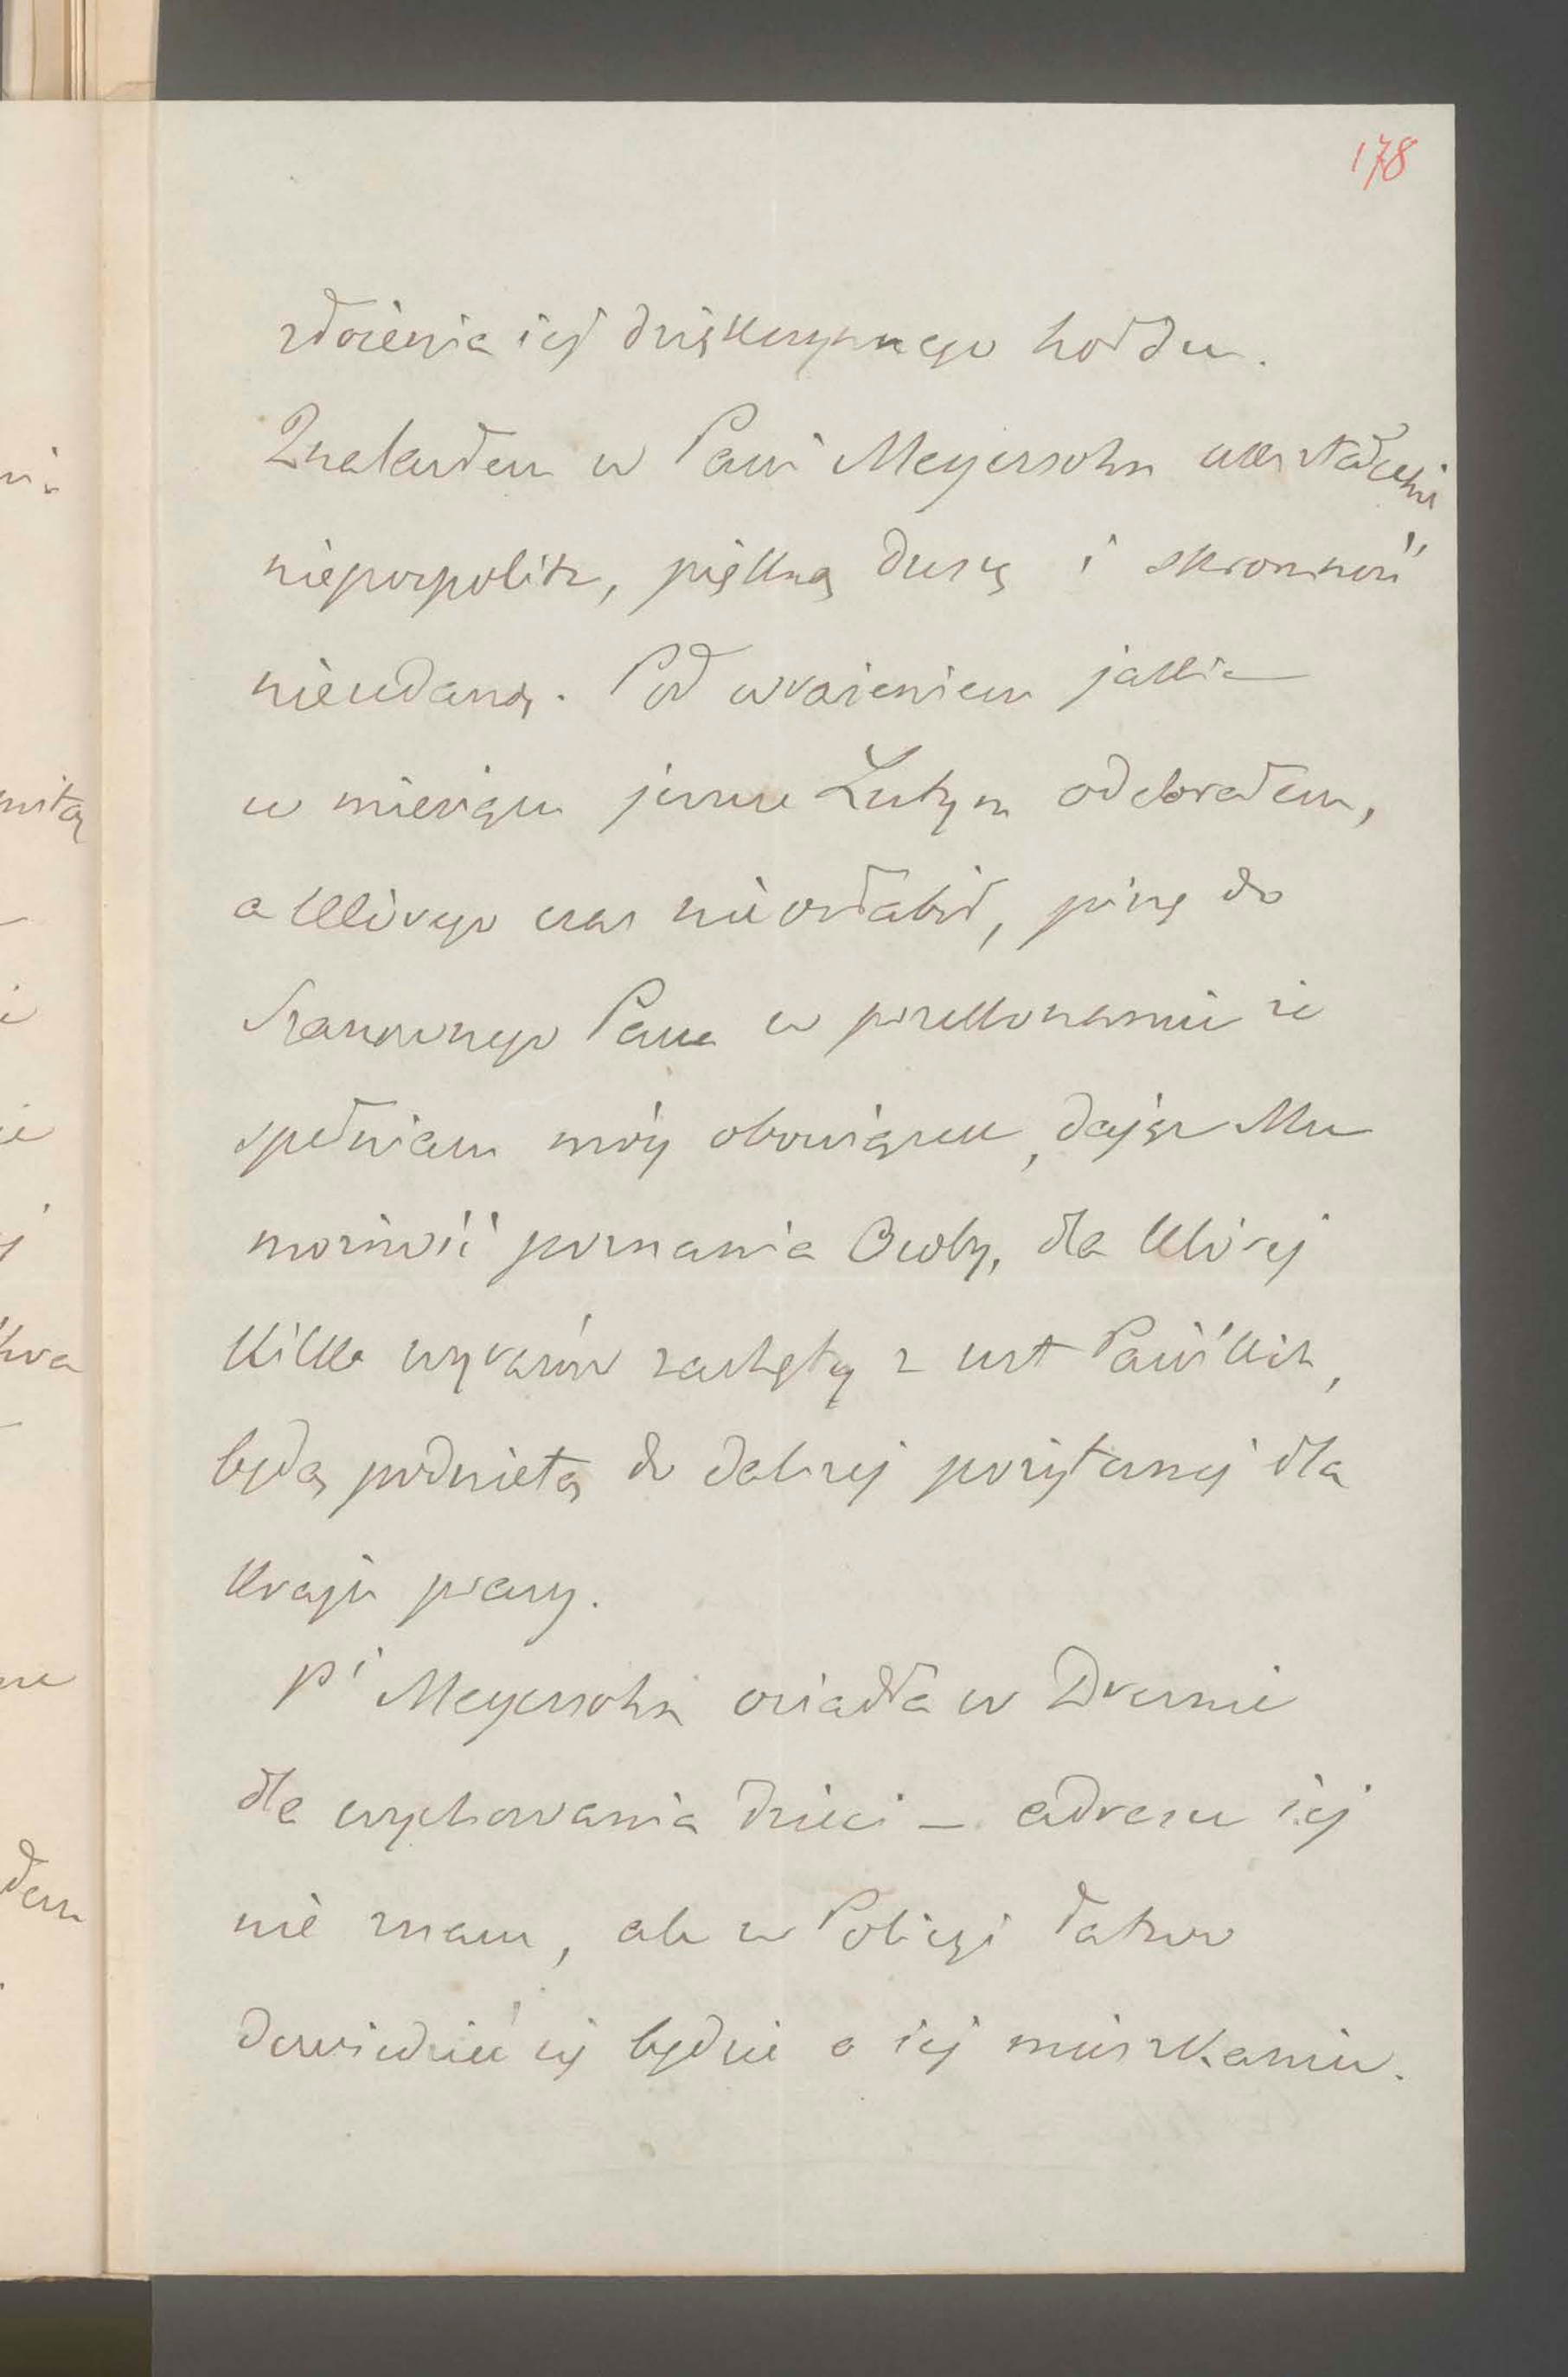 178
złożenia jej dziękczynnego hołdu.
Znalazłem w Pani Meyersohn wykształcenie
niepospolite, piękną duszę i skromność
nieudaną. Pod wrażeniem jakie
w miesiącu jeszcze Lutym odebrałem,
a którego czas nie osłabił, piszę do
Szanownego Pana w przekonaniu że
spełniam mój obowiązek, dając Mu
możność poznania Osoby, dla której
kilka wyrazów zachęty z ust Pańskich,
będą podnietą do dalszej pożytecznej dla
kraju pracy.
Pi Meyersohn osiadła w Dreznie
dla wychowania dzieci – adresu jej
nie znam, ale w Policyi łatwo
dowiedzieć się będzie o jej mieszkaniu.